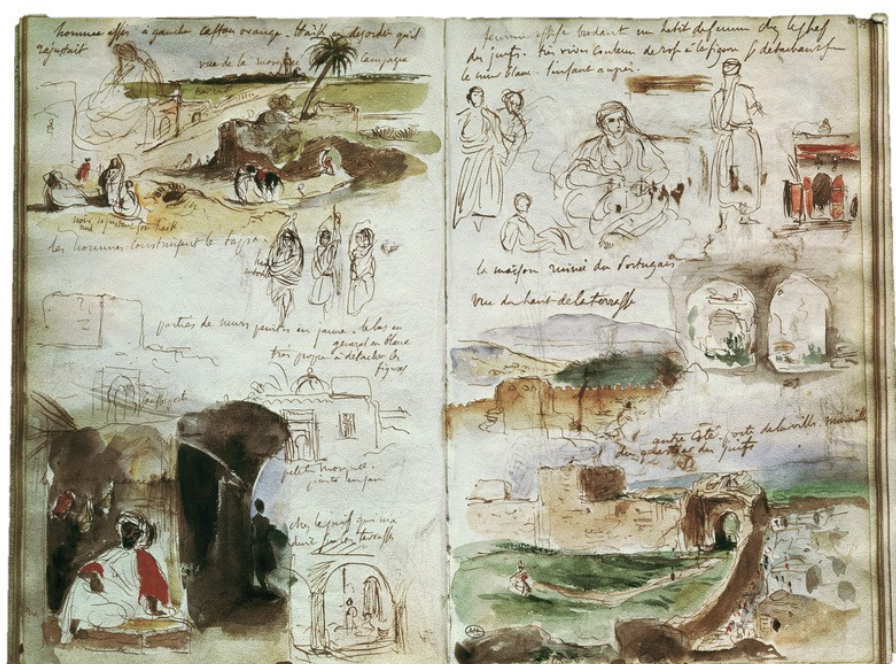 homme assis à gauche caftan orange. Haïk en desordre qu'il
rajustait
vue de la mosquée campagne
noir ajustant son haik
nud
les hommes construisent le
parties de murs peintes en jaune. le bas en
general en blanc
très propre à détacher les
figures
petite mosquée.
peinte en jau
chez le juif qui m'a
duit par les terrasses
femme assise brodant un habit de femme chez le chef
des juifs. très vives couleur de rose à la figure se detachant sur
le mur blanc. l'enfant auprès.
la maison ruinée du Portugais
vue du haut de la terrasse
autre côté. porte de la ville. muraille
du quartier des juifs